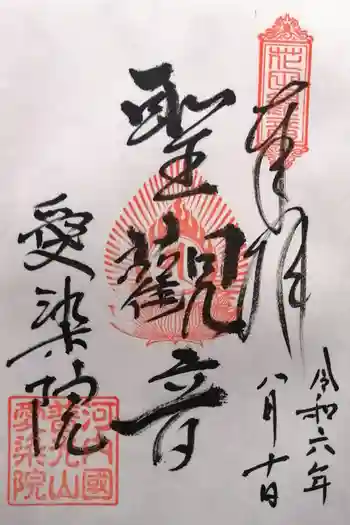 奉拝
令和六年
八月十日
聖観音
愛染院
河内國
宝光山
愛染院